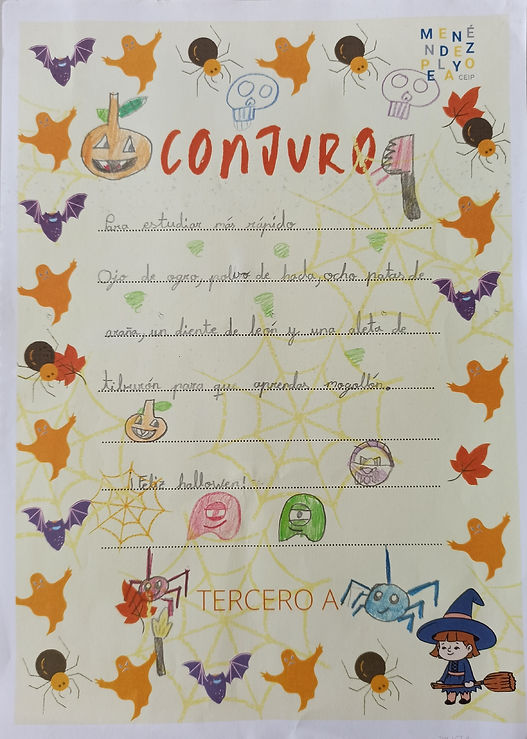 MENÉ
NDEZ
PELAYO
CEIP
CONJURO
Para estudiar más rápido
Ojo de ogro, polvo de hada, ocho patas de
araña, un diente de león y una aleta de
tiburón para que aprendas mogollón.
¡Feliz hallowen!
TERCERO A